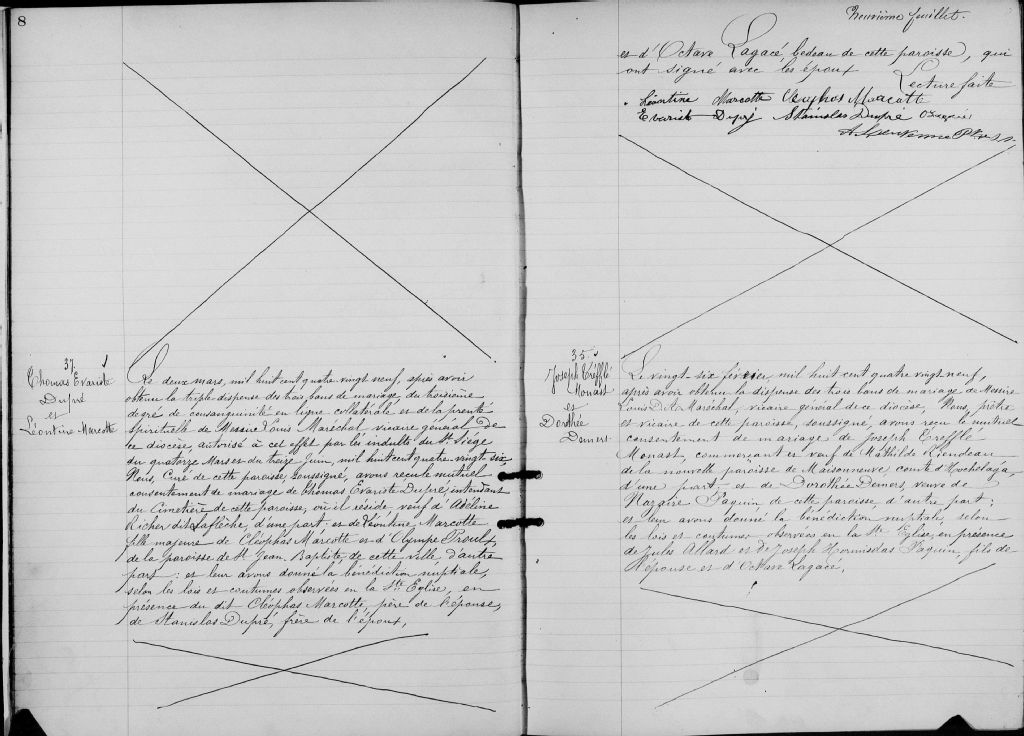 8
37
Thomas Evariste
Dupré
et
Léontine Marcotte
Le deux mars, mil huit cent quatre vingt neuf, après avoir
obtenu la triple dispense des trois bans de mariage, du troisième
degré de consanguinité en ligne collatérale et de la parenté
spirituelle de Messire Louis Maréchal vicaire général de
ce diocèse, autorisé à cet effet par les indults du St Siège
du quatorze Mars et du treize Juin, mil huit cent quatre-vingt six,
Nous, Curé de cette paroisse, soussigné, avons reçu le mutuel
consentement de mariage de Thomas Evariste Dupré, intendant
du Cimetière de cette paroisse, où il réside, veuf d'Adéline
Richer dit Laflèche, d'une part; et de Léontine Marcotte
fille majeure de Cléophas Marcotte et d'Olympe Proulx,
de la paroisse de St Jean Baptiste, de cette ville, d'autre
part: et leur avons donné la bénédiction nuptiale,
selon les lois et coutumes observées en la Ste Eglise, en
présence du dit Cléophas Marcotte, père de l'épouse,
de Stanislas Dupré, frère de l'époux,
feuillet.
et d'Octave Lagacé, bedeau de cette paroisse, qui
ont signé avec les époux Lecture faite
Léontine Marcotte Cléophas Marcotte
Evariste Dupré Stanislas Dupré
35
Joseph Tréfflé
Monast
et
Dorothée
Demers
Le vingt-six février mil huit cent quatre vingt neuf,
après avoir obtenu la dispense des trois bans de mariage de Messire
Louis Maréchal, vicaire général de ce diocèse, Nous, prêtre
et vicaire de cette paroisse, soussigné, avons reçu le mutuel
consentement de mariage de Joseph Tréfflé
Monast, commerçant et veuf de Mathilde Riendeau
de la nouvelle paroisse de Maisonneuve comté d'Hochelaga,
d'une part; et de Dorothée Demers, veuve de
Nazaire Paquin de cette paroisse, d'autre part;
et leur avons donné la bénédiction nuptiale, selon
les lois et coutumes observées en la Ste Eglise, en présence
de Jules Allard et de Joseph Hormisdas Paquin, fils de
l'épouse et d'Octave Lagacé,